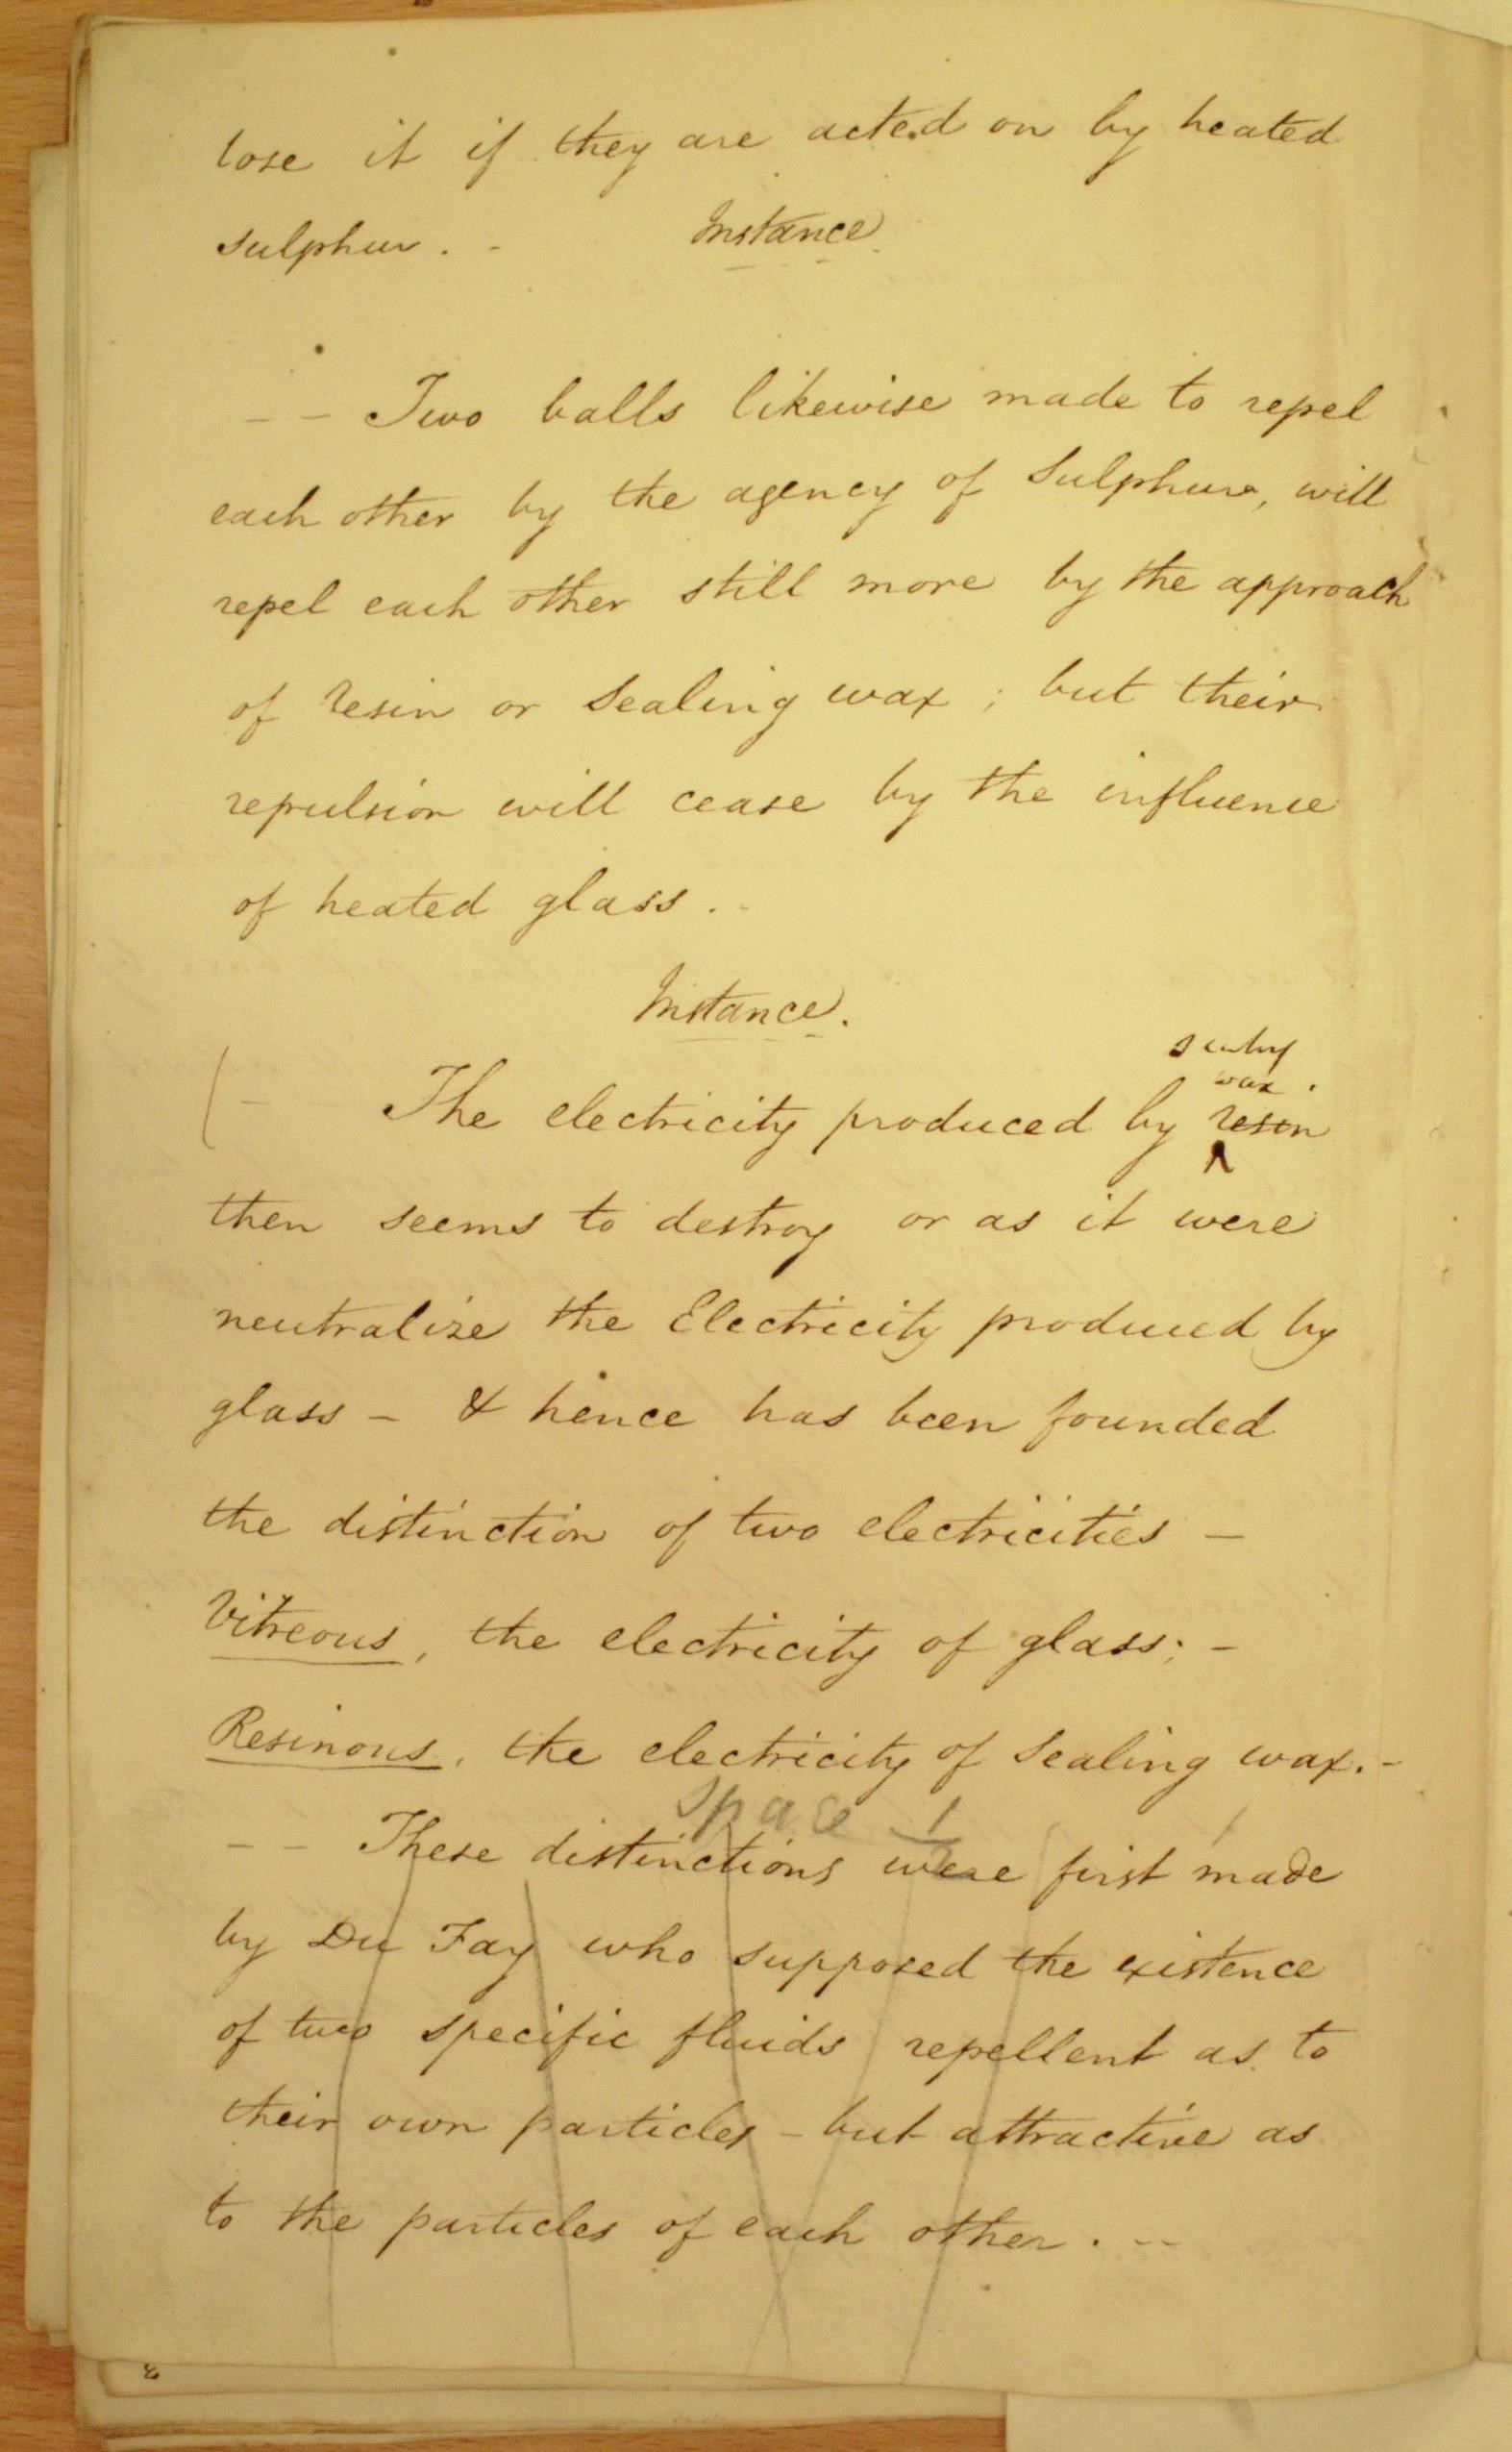 lose it if they are acted on by heated
sulphur. - Instance
- - Two balls likewise made to repel
each other by the agency of Sulphur, will
repel each other still more by the approach
of resin or Sealing wax; but their
repulsion will cease by the influence
of heated glass. -
Instance.
sealing
wax.
(- The electricity produced by resin
then seems to destroy or as it were
neutralize the Electricity produced by
glass - & hence has been founded
the distinction of two electricities -
Vitreous, the electricity of glass; -
Resinous, the electricity of Sealing wax. -
Space 1
- - These distinctions were first made
by Du Fay who supposed the existence
of two specific fluids repellent as to
their own particles - but attractive as
to the particles of each other. --